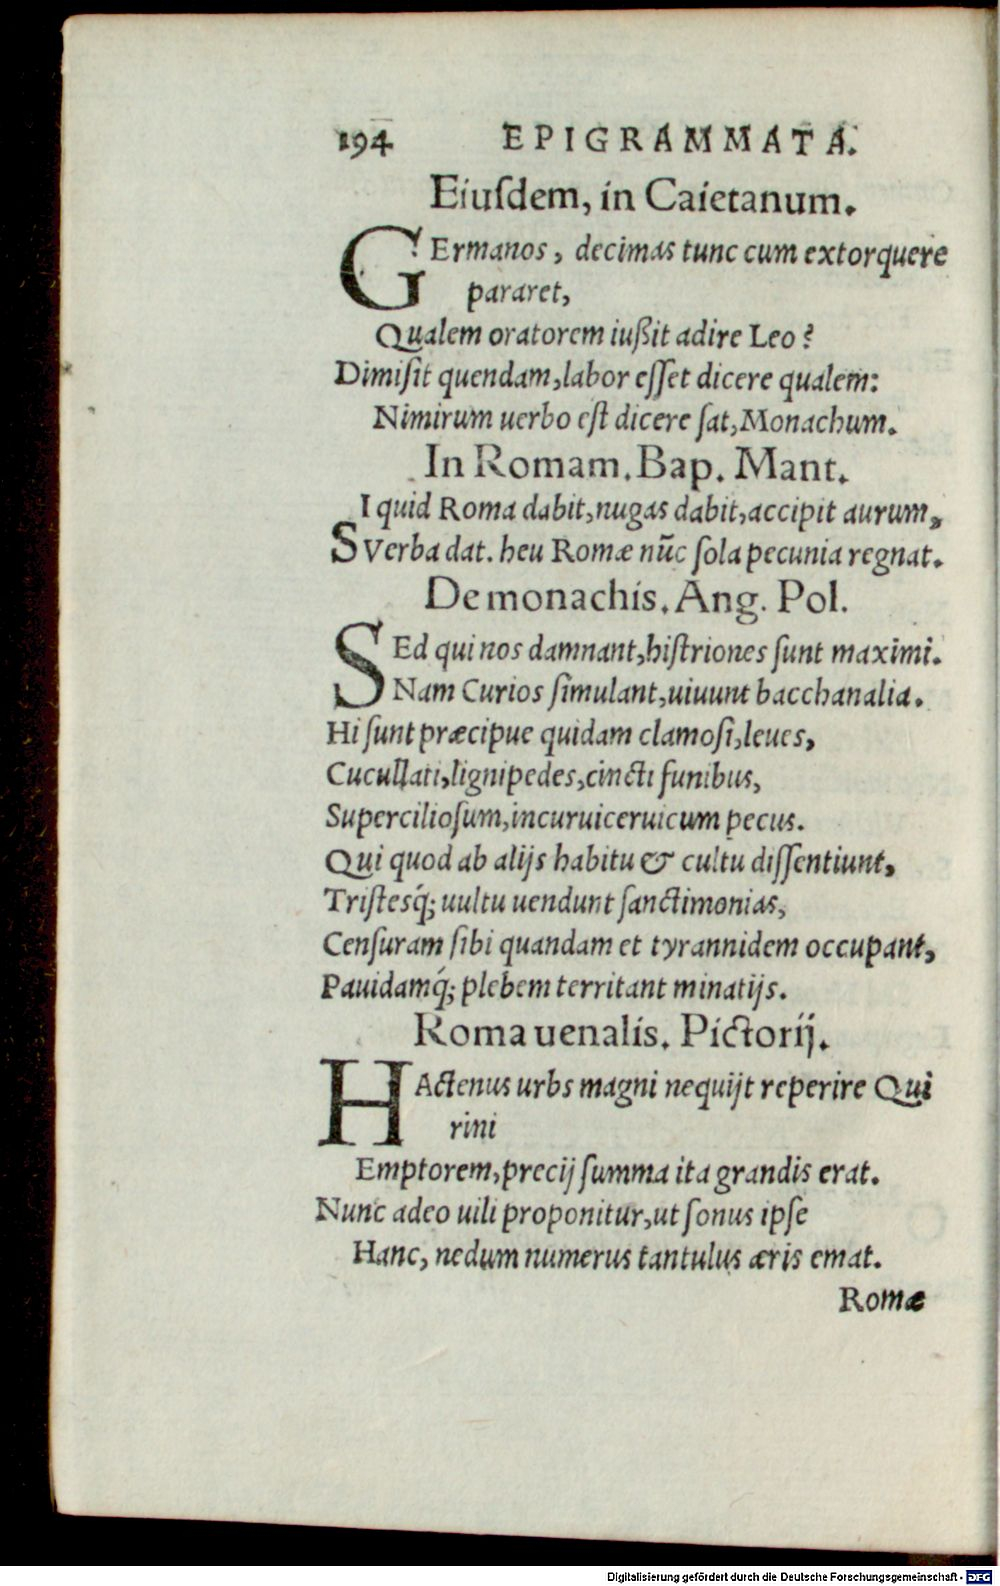 194 EPIGRAMMATA.
Eiuſdem, in Caietanum.
GErmanos, decimas tunc cum extorquere
pararet,
Qualem oratorem iußit adire Leo?
Dimiſit quendam, labor eſſet dicere qualem:
Nimirum uerbo eſt dicere ſat, Monachum.
In Romam. Bap. Mant.
SI quid Roma dabit, nugas dabit, accipit aurum,
Verba dat. heu Romæ nūc ſola pecunia regnat.
De monachis. Ang. Pol.
SEd qui nos damnant, hiſtriones ſunt maximi.
Nam Curios ſimulant, uiuunt bacchanalia.
Hi ſunt præcipue quidam clamoſi, leues,
Cucullati, lignipedes, cincti funibus,
Supercilioſum, incuruiceruicum pecus.
Qui quod ab alijs habitu & cultu diſſentiunt,
Triſtesq́; uultu uendunt ſanctimonias,
Cenſuram ſibi quandam et tyrannidem occupant,
Pauidamq́; plebem territant minatijs.
Roma uenalis. Pictorij.
HActenus urbs magni nequijt reperire Qui
rini
Emptorem, precij ſumma ita grandis erat.
Nunc adeo uili proponitur, ut ſonus ipſe
Hanc, nedum numerus tantulus æris emat.
Romæ
Digitalisierung gefördert durch die Deutsche Forschungsgemeinschaft - DFG